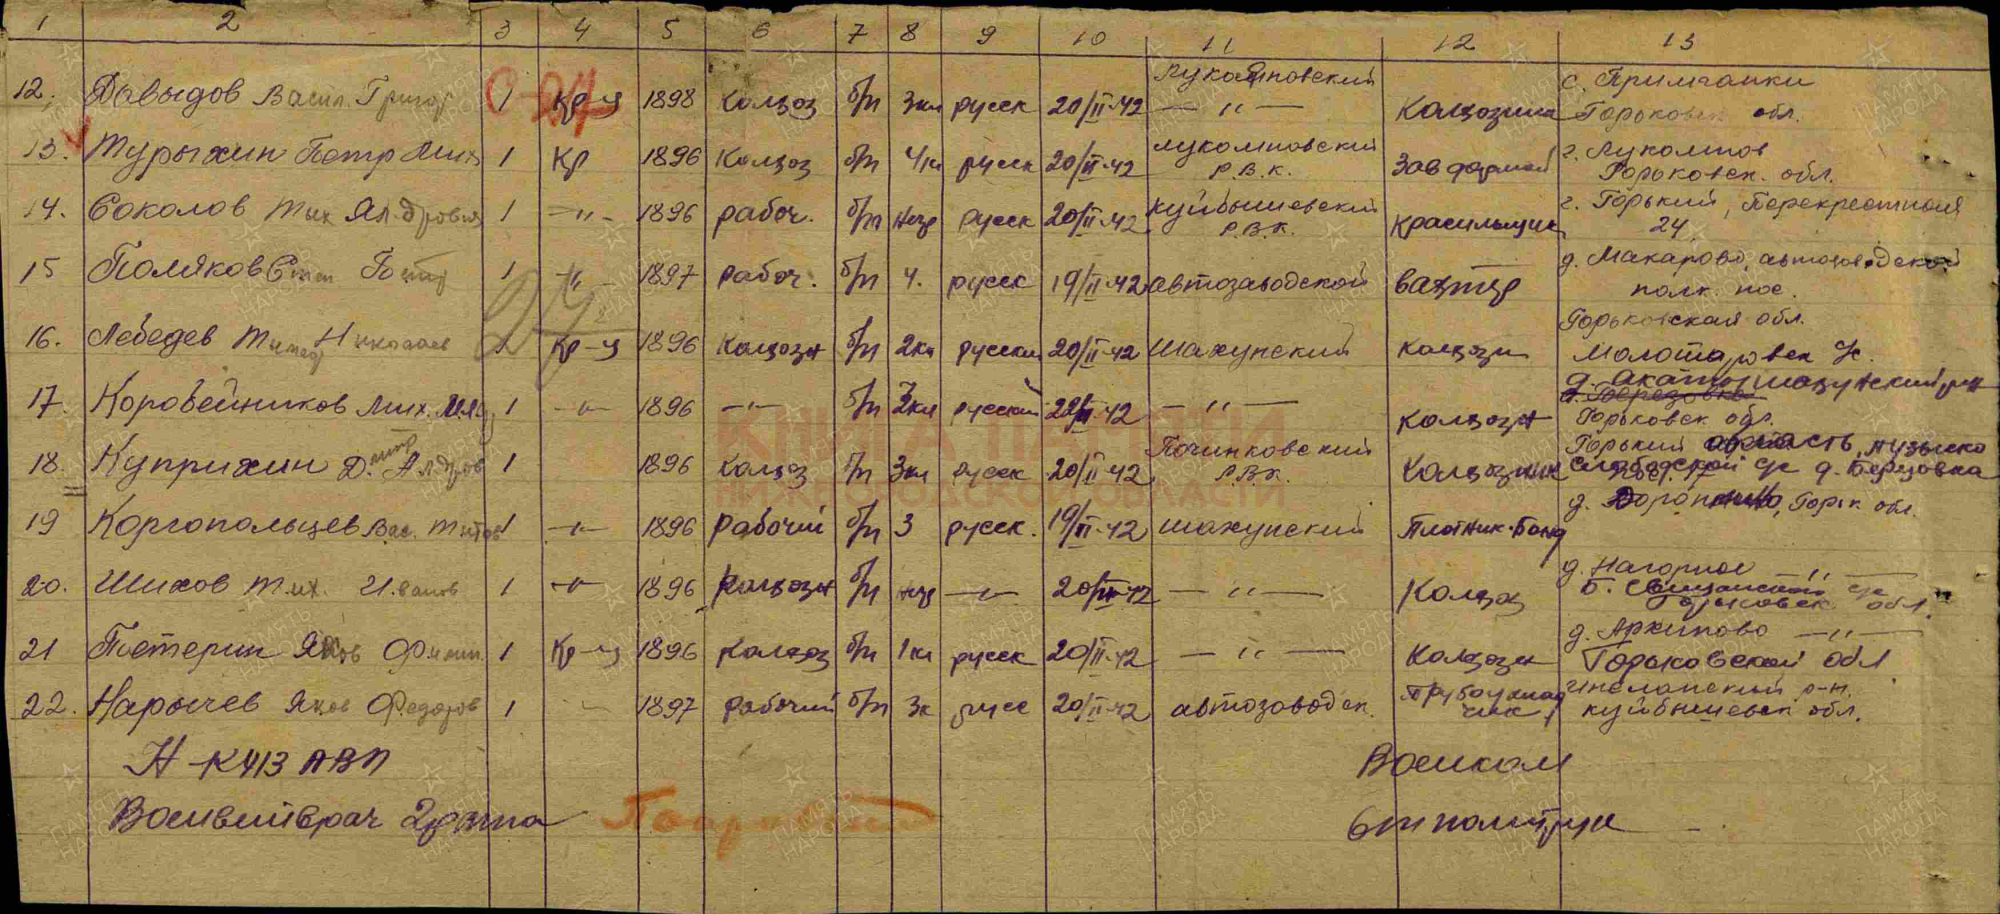 1 2 3 4 5 6 7 8 9 10 11 12 13
12. Давыдов Васил. Григор 1 Кр-ц 1898 Колхоз б/п 3кл русск 20/II-42 Лукояновский —„— Колхозник с. Примчанки Горьковск обл.
13. Турыхин Петр Мих 1 Кр 1896 Колхоз б/п 4кл русск 20/II-42 Лукояновский Р.В.К. Зав фермой г. Лукоянов Горьковск. обл.
14. Соколов Тих Ал-дрович 1 —„— 1896 рабоч. б/п негр русск 20/II-42 Куйбышевский Р.В.К. Красильщик г. Горький, Перекрестная 24
15 Поляков Степ Петр 1 —„— 1897 рабоч. б/п 4. русск 19/II-42 автозаводской вахтер д. Макарово, автозаводской пос.
16. Лебедев Тимоф Николаев 1 Кр-ц 1896 Колхозн б/п 2кл русский 20/II-42 Шахунский Колхозн Горьковская обл.
17. Коробейников Мих. 1 —„— 1896 —„— б/п 2кл русский 22/II-42 —„— Колхозн Шахунский рн Горьковск обл.
18. Куприхин Дмитр Ал-дров 1 1896 Колхоз б/п 3кл русск 20/II-42 Починковский Р.В.К. Колхозник Горький область, д. Березовка
19 Коргопольцев Вас. Титов 1 —„— 1896 рабочий б/п 3 русск. 19/II-42 Шахунский Плотник-Бонд д. Доронино, Горьк обл.
20. Шихов Тих. Иванов 1 —„— 1896 Колхозн б/п негр —„— 20/II-42 —„— Колхоз д. Нагорное —„— Горьковск обл.
21 Пятерин Яков 1 Кр-ц 1896 Колхоз б/п 1кл русск 20/II-42 —„— Колхозн д. Архипово —„— Горьковской обл
22. Нарычев Яков Федоров 1 1897 рабочий б/п 3к русс 20/II-42 автозаводск. р-н. Куйбышевск обл.
Н-К 413 АВП Военком
Военветврач 2 ранга Ст политрук
КНИГА ПАМЯТИ
НИЖЕГОРОДСКОЙ ОБЛАСТИ
ПАМЯТЬ НАРОДА